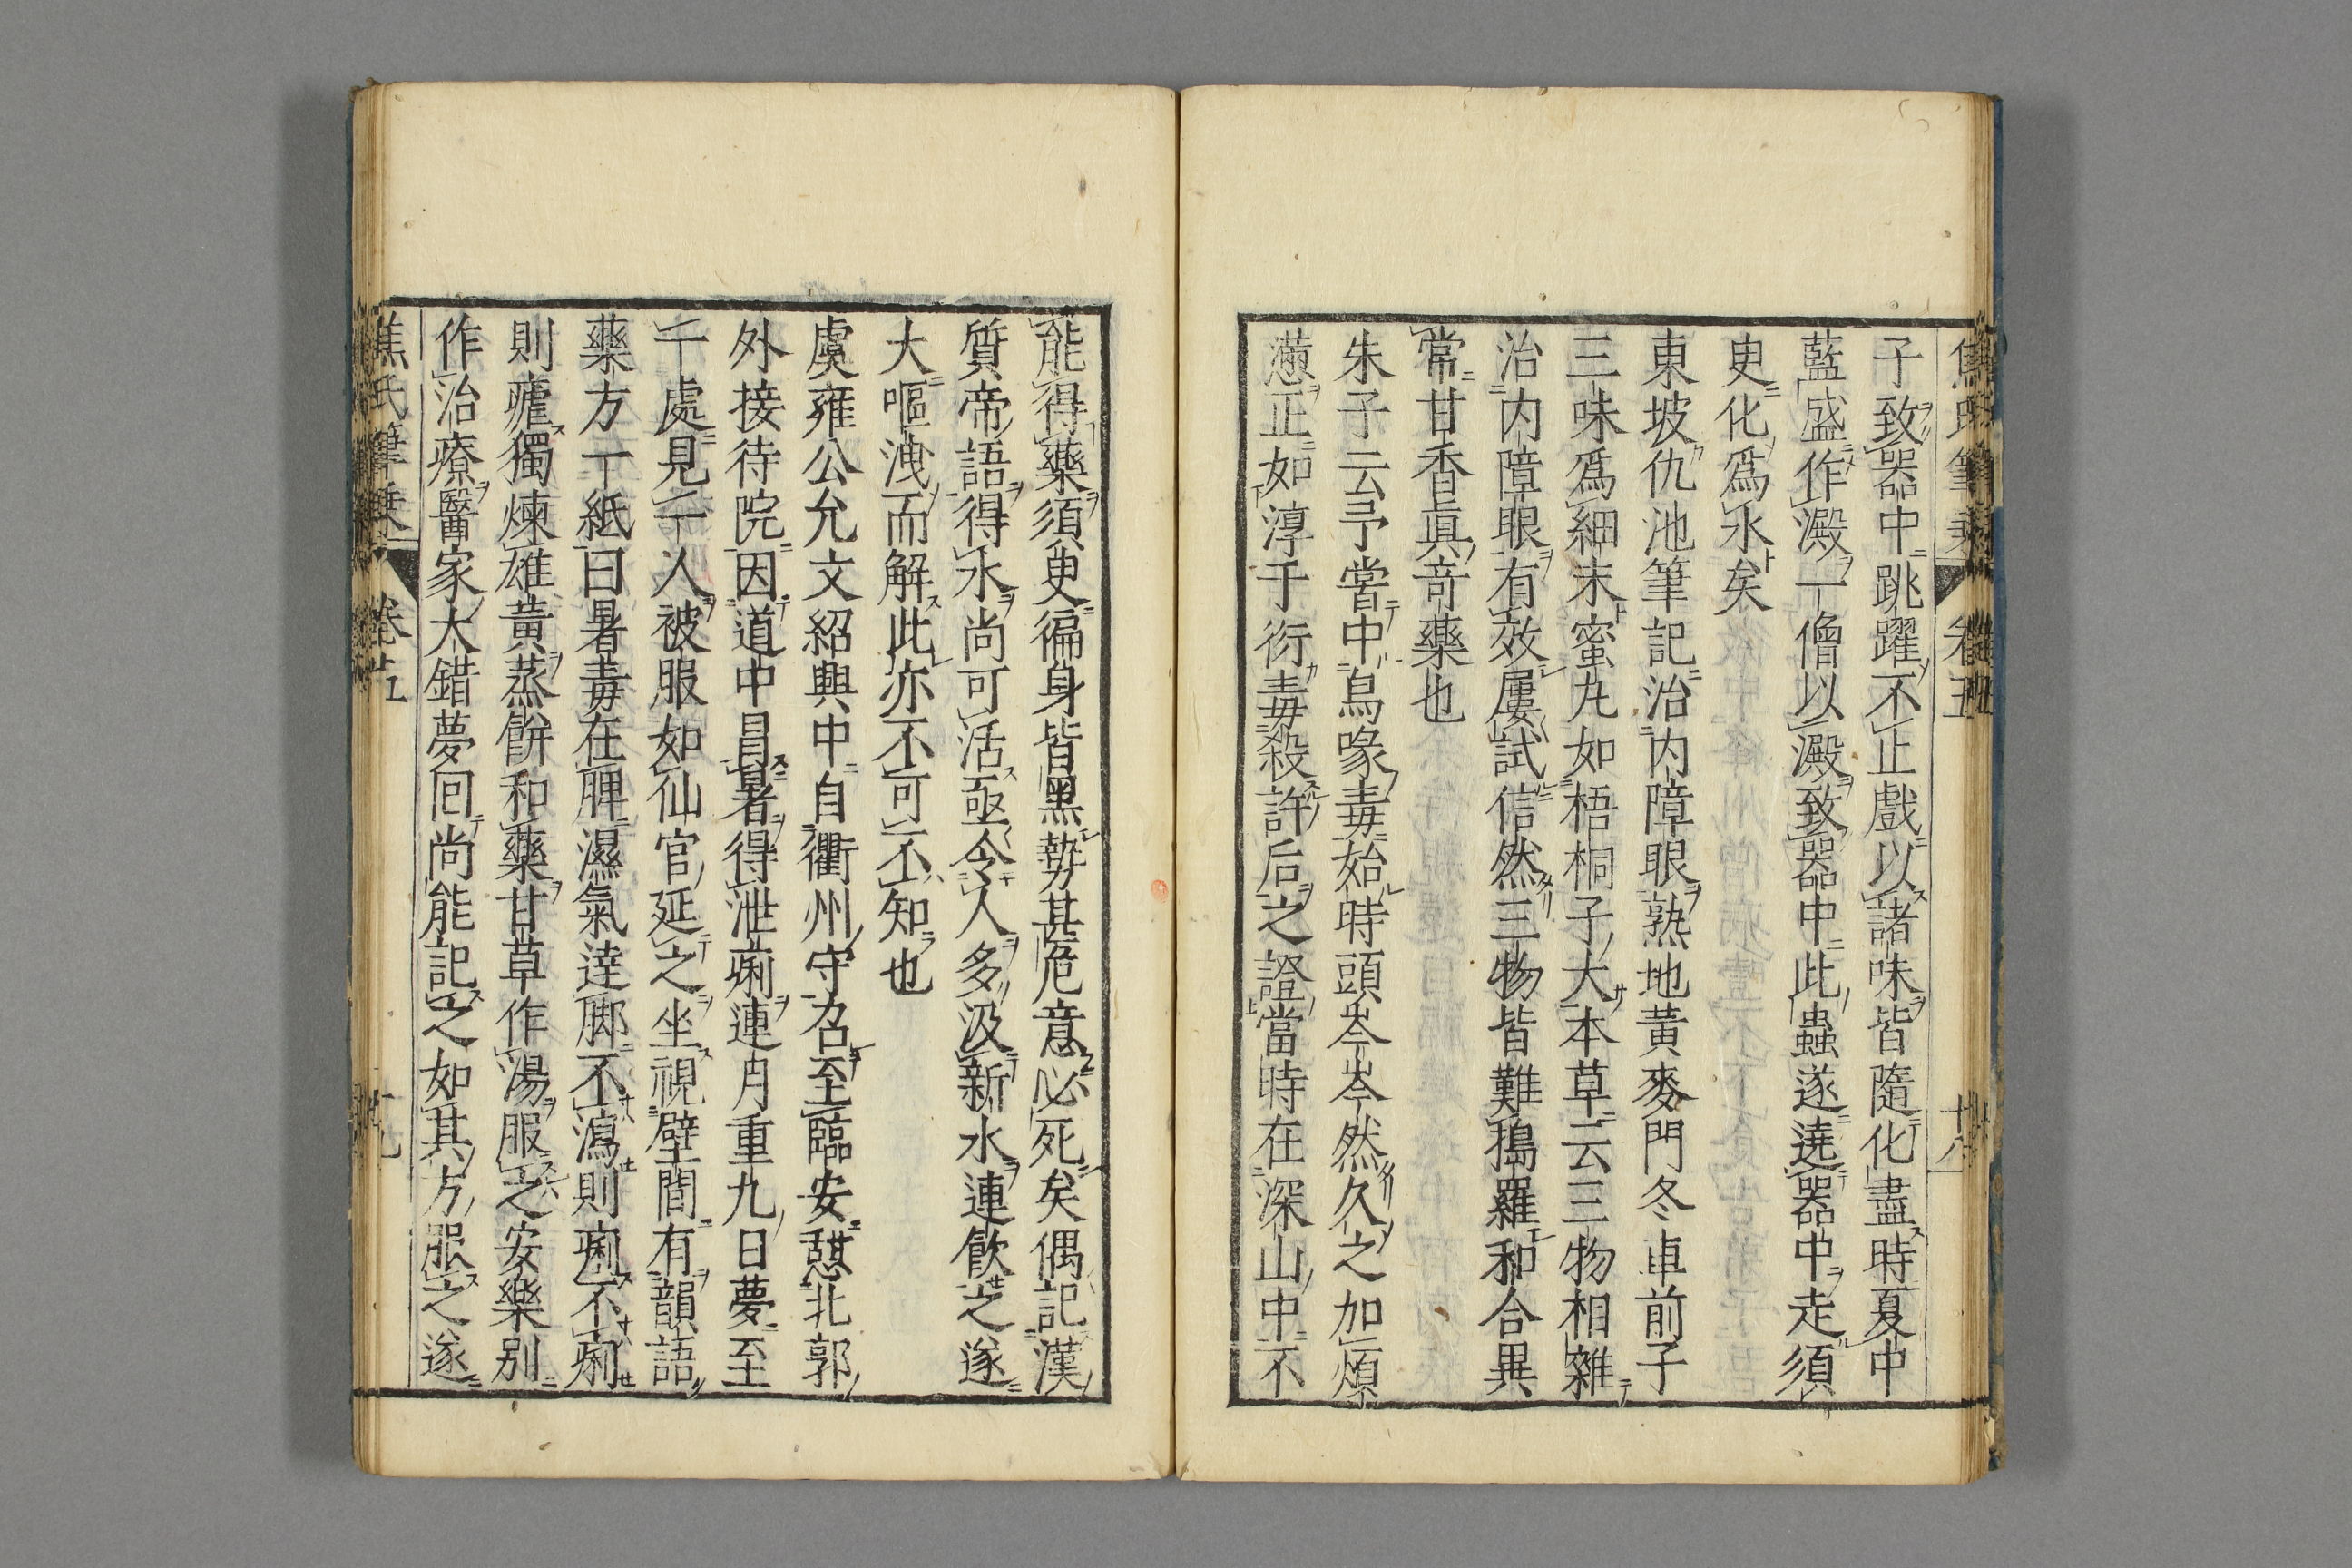 焦氏筆乘 卷五 十八
子致器中跳躍不止戲以諸味皆隨化盡時夏中
藍盛作澱一僧以澱致器中此蟲遂遶器中走須
臾化爲水矣
東坡仇池筆記治内障眼熟地黃麥門冬車前子
三味爲細末蜜丸如梧桐子大本草云三物相雜
治内障眼有效屢試信然三物皆難搗羅和合異
常甘香眞奇藥也
朱子云予嘗中烏喙毒始時頭岑岑然久之加煩
懣正如淳于衍毒殺許后之證當時在深山中不
能得藥須臾徧身皆黑勢甚危意必死矣偶記漢
質帝語得水尚可活亟令人多汲新水連飲之遂
大嘔洩而解此亦不可不知也
虞雍公允文紹興中自衢州守召至臨安憩北郭
外接待院因道中冒暑得泄痢連月重九日夢至
一處見一人被服如仙官延之坐視壁間有韻語
藥方一紙曰暑毒在脾濕氣達脚不瀉則痢不痢
則瘧獨煉雄黃蒸餅和藥甘草作湯服之安樂別
作治療醫家大錯夢回尚能記之如其方服之遂
焦氏筆乘 卷五 十九